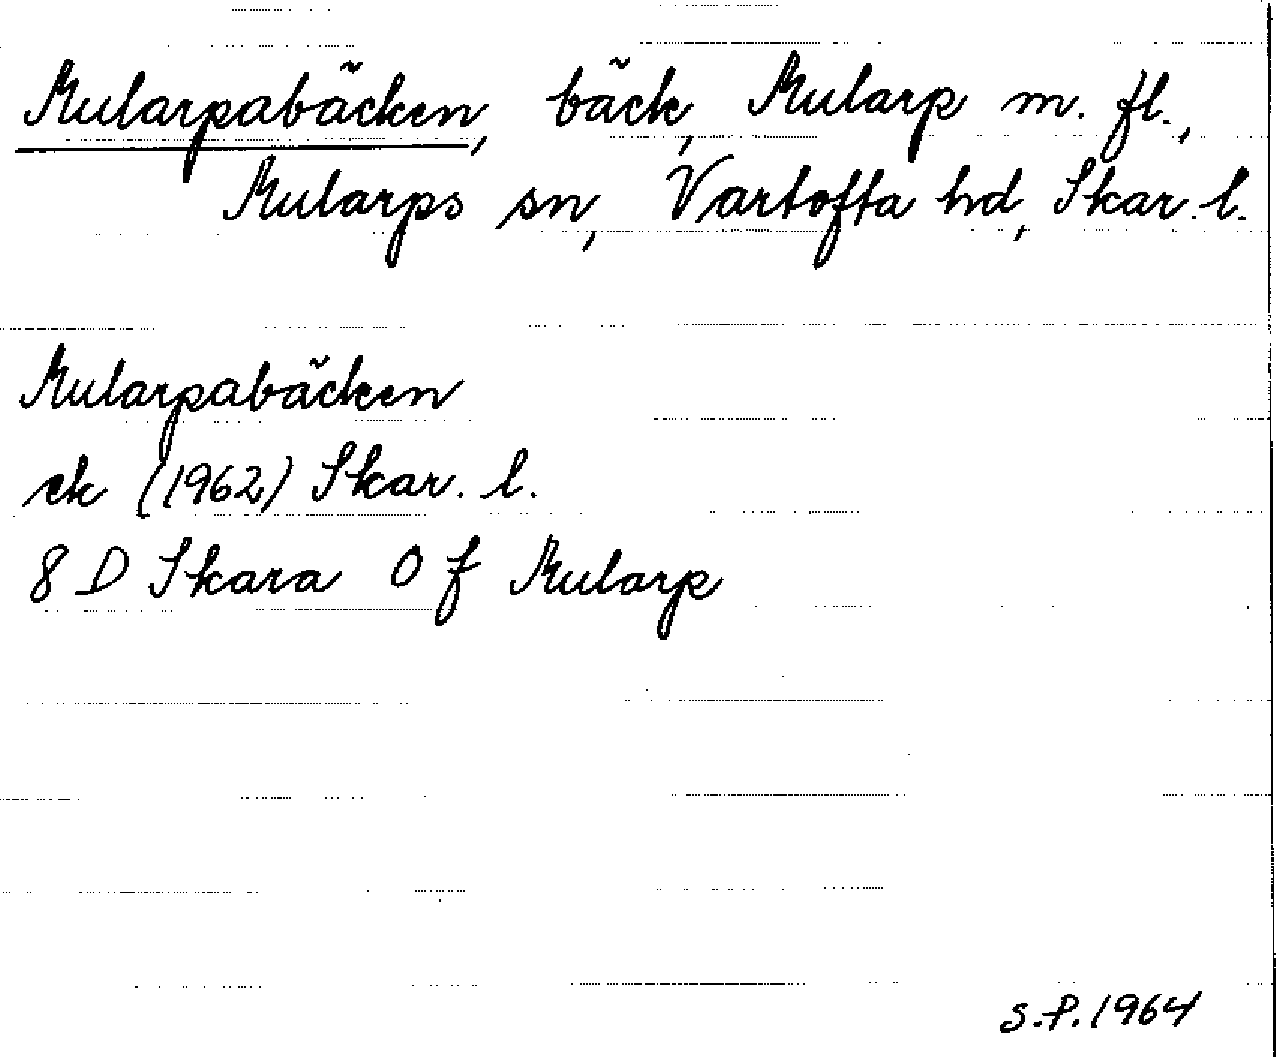 Mularpabäcken, bäck, Mularp m. fl.,
Mularps sn, Vartofta hd, Skar. l.
Mularpabäcken
ek (1962) Skar. l.
8 D Skara 0 f Mularp
S.P. 1964